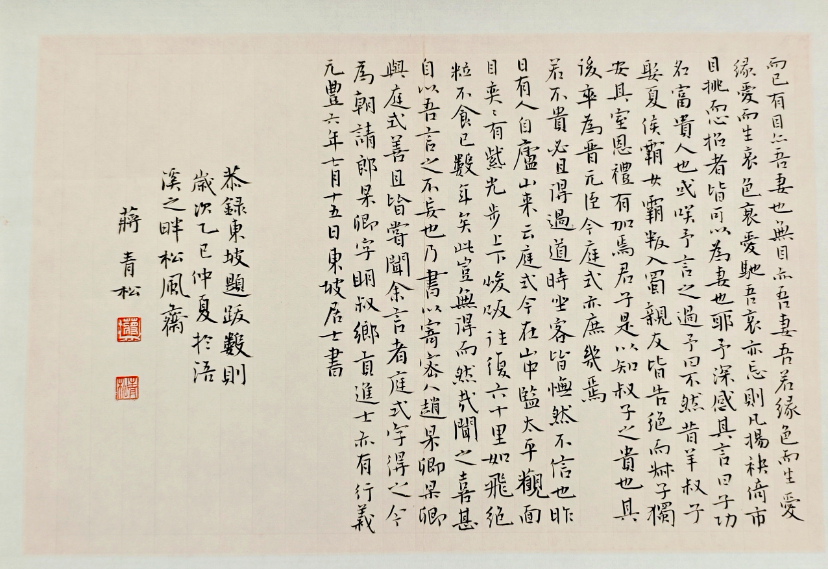 而已有目亦吾妻也無目亦吾妻吾若緣色而生愛
緣愛而生哀色衰愛馳吾哀亦忘則凡揚袂倚市
目挑而心招者皆可以為妻也耶予深感其言曰子功
名富貴人也或咲予言之過予曰不然昔羊叔子
娶夏侯霸女霸叛入蜀親友皆告絕而叔子獨
安其室恩禮有加焉君子是以知叔子之貴也其
後卒為晉元臣今庭式亦庶幾焉
若不貴必且得過道時坐客皆憮然不信也昨
日有人自廬山来云庭式今在山中監太平觀面
目奕〻有紫光步上下峻坂往復六十里如飛絕
粒不食已數年矣此豈無得而然哉聞之喜甚
自以吾言之不妄也乃書以寄密人趙杲卿杲卿
與庭式善且皆嘗聞余言者庭式字得之今
為朝請郎杲卿字明叔鄉貢進士亦有行義
元豐六年七月十五日東坡居士書
恭錄東坡題跋數則
歲次乙巳仲夏於浯
溪之畔松風齋
蔣青松